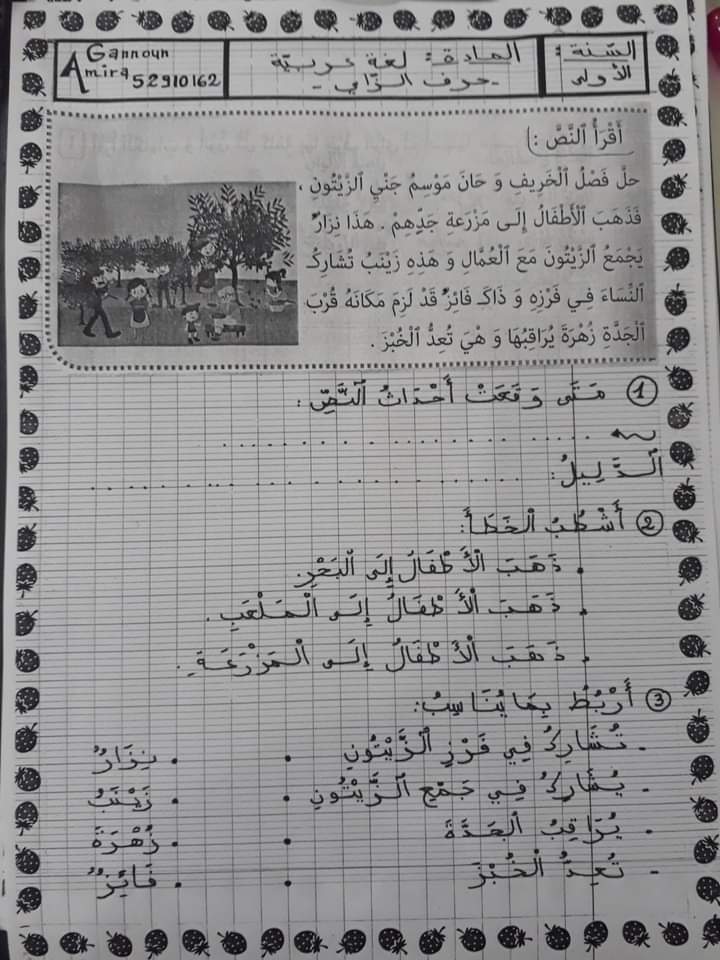 السّنة :
الأولى
المادة : لغة عربيّة
- حرف الزّاي -
Gannoun
Amira 52910162
أَقْرَأُ النَّصَّ :
حلَّ فَصْلُ الْخَرِيفِ وَ حَانَ مَوْسِمُ جَنْيِ الزَّيْتُونِ ،
فَذَهَبَ الْأَطْفَالُ إِلَى مَزْرَعَةِ جَدِّهِمْ . هَذَا نِزَارٌ
يَجْمَعُ الزَّيْتُونَ مَعَ الْعُمَّالِ وَ هَذِهِ زَيْنَبُ تُشَارِكُ
النِّسَاءَ فِي فَرْزِهِ وَ ذَاكَ فَائِزٌ قَدْ لَزِمَ مَكَانَهُ قُرْبَ
الْجَدَّةِ زُهْرَةَ يُرَاقِبُهَا وَ هْيَ تُعِدُّ الْخُبْزَ .
1 مَتَى وَقَعَتْ أَحْدَاثُ النَّصِّ :
الدَّلِيلُ :
2 أَشْطُبُ الْخَطَأَ :
. ذَهَبَ الْأَطْفَالُ إِلَى الْبَحْرِ.
. ذَهَبَ الْأَطْفَالُ إِلَى الْمَلْعَبِ .
. ذَهَبَ الْأَطْفَالُ إِلَى الْمَزْرَعَةِ .
3 أَرْبُطُ بِمَا يُنَاسِبُ :
- تُشَارِكُ فِي فَرْزِ الزَّيْتُونِ . . نِزَارٌ
- يُشَارِكُ فِي جَمْعِ الزَّيْتُونِ . . زَيْنَبُ
- يُرَاقِبُ الْجَدَّةَ . . زُهْرَةَ
- تُعِدُّ الْخُبْزَ . . فَائِزٌ